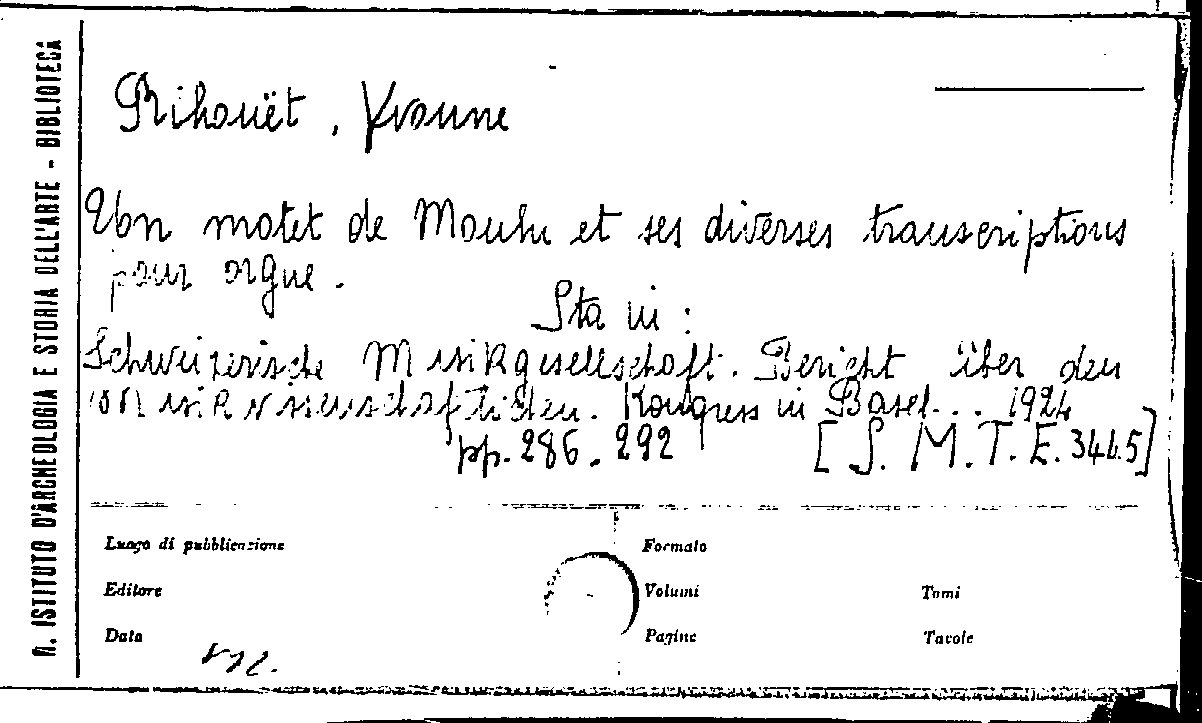 R. ISTITUTO D'ARCHEOLOGIA E STORIA DELL'ARTE - BIBLIOTECA
Rihouët, Yvonne
Un motet de Moulu et ses diverses transcriptions
pour orgue.
Sta in:
Schweizerische Musikgesellschaft. Bericht über den
Musikwissenschaftlichen. Kongress in Basel... 1924
pp. 286-292 [S. M. T. E. 344.5]
Luogo di pubblicazione
Formato
Editore
Volumi
Tomi
Data
Pagine
Tavole